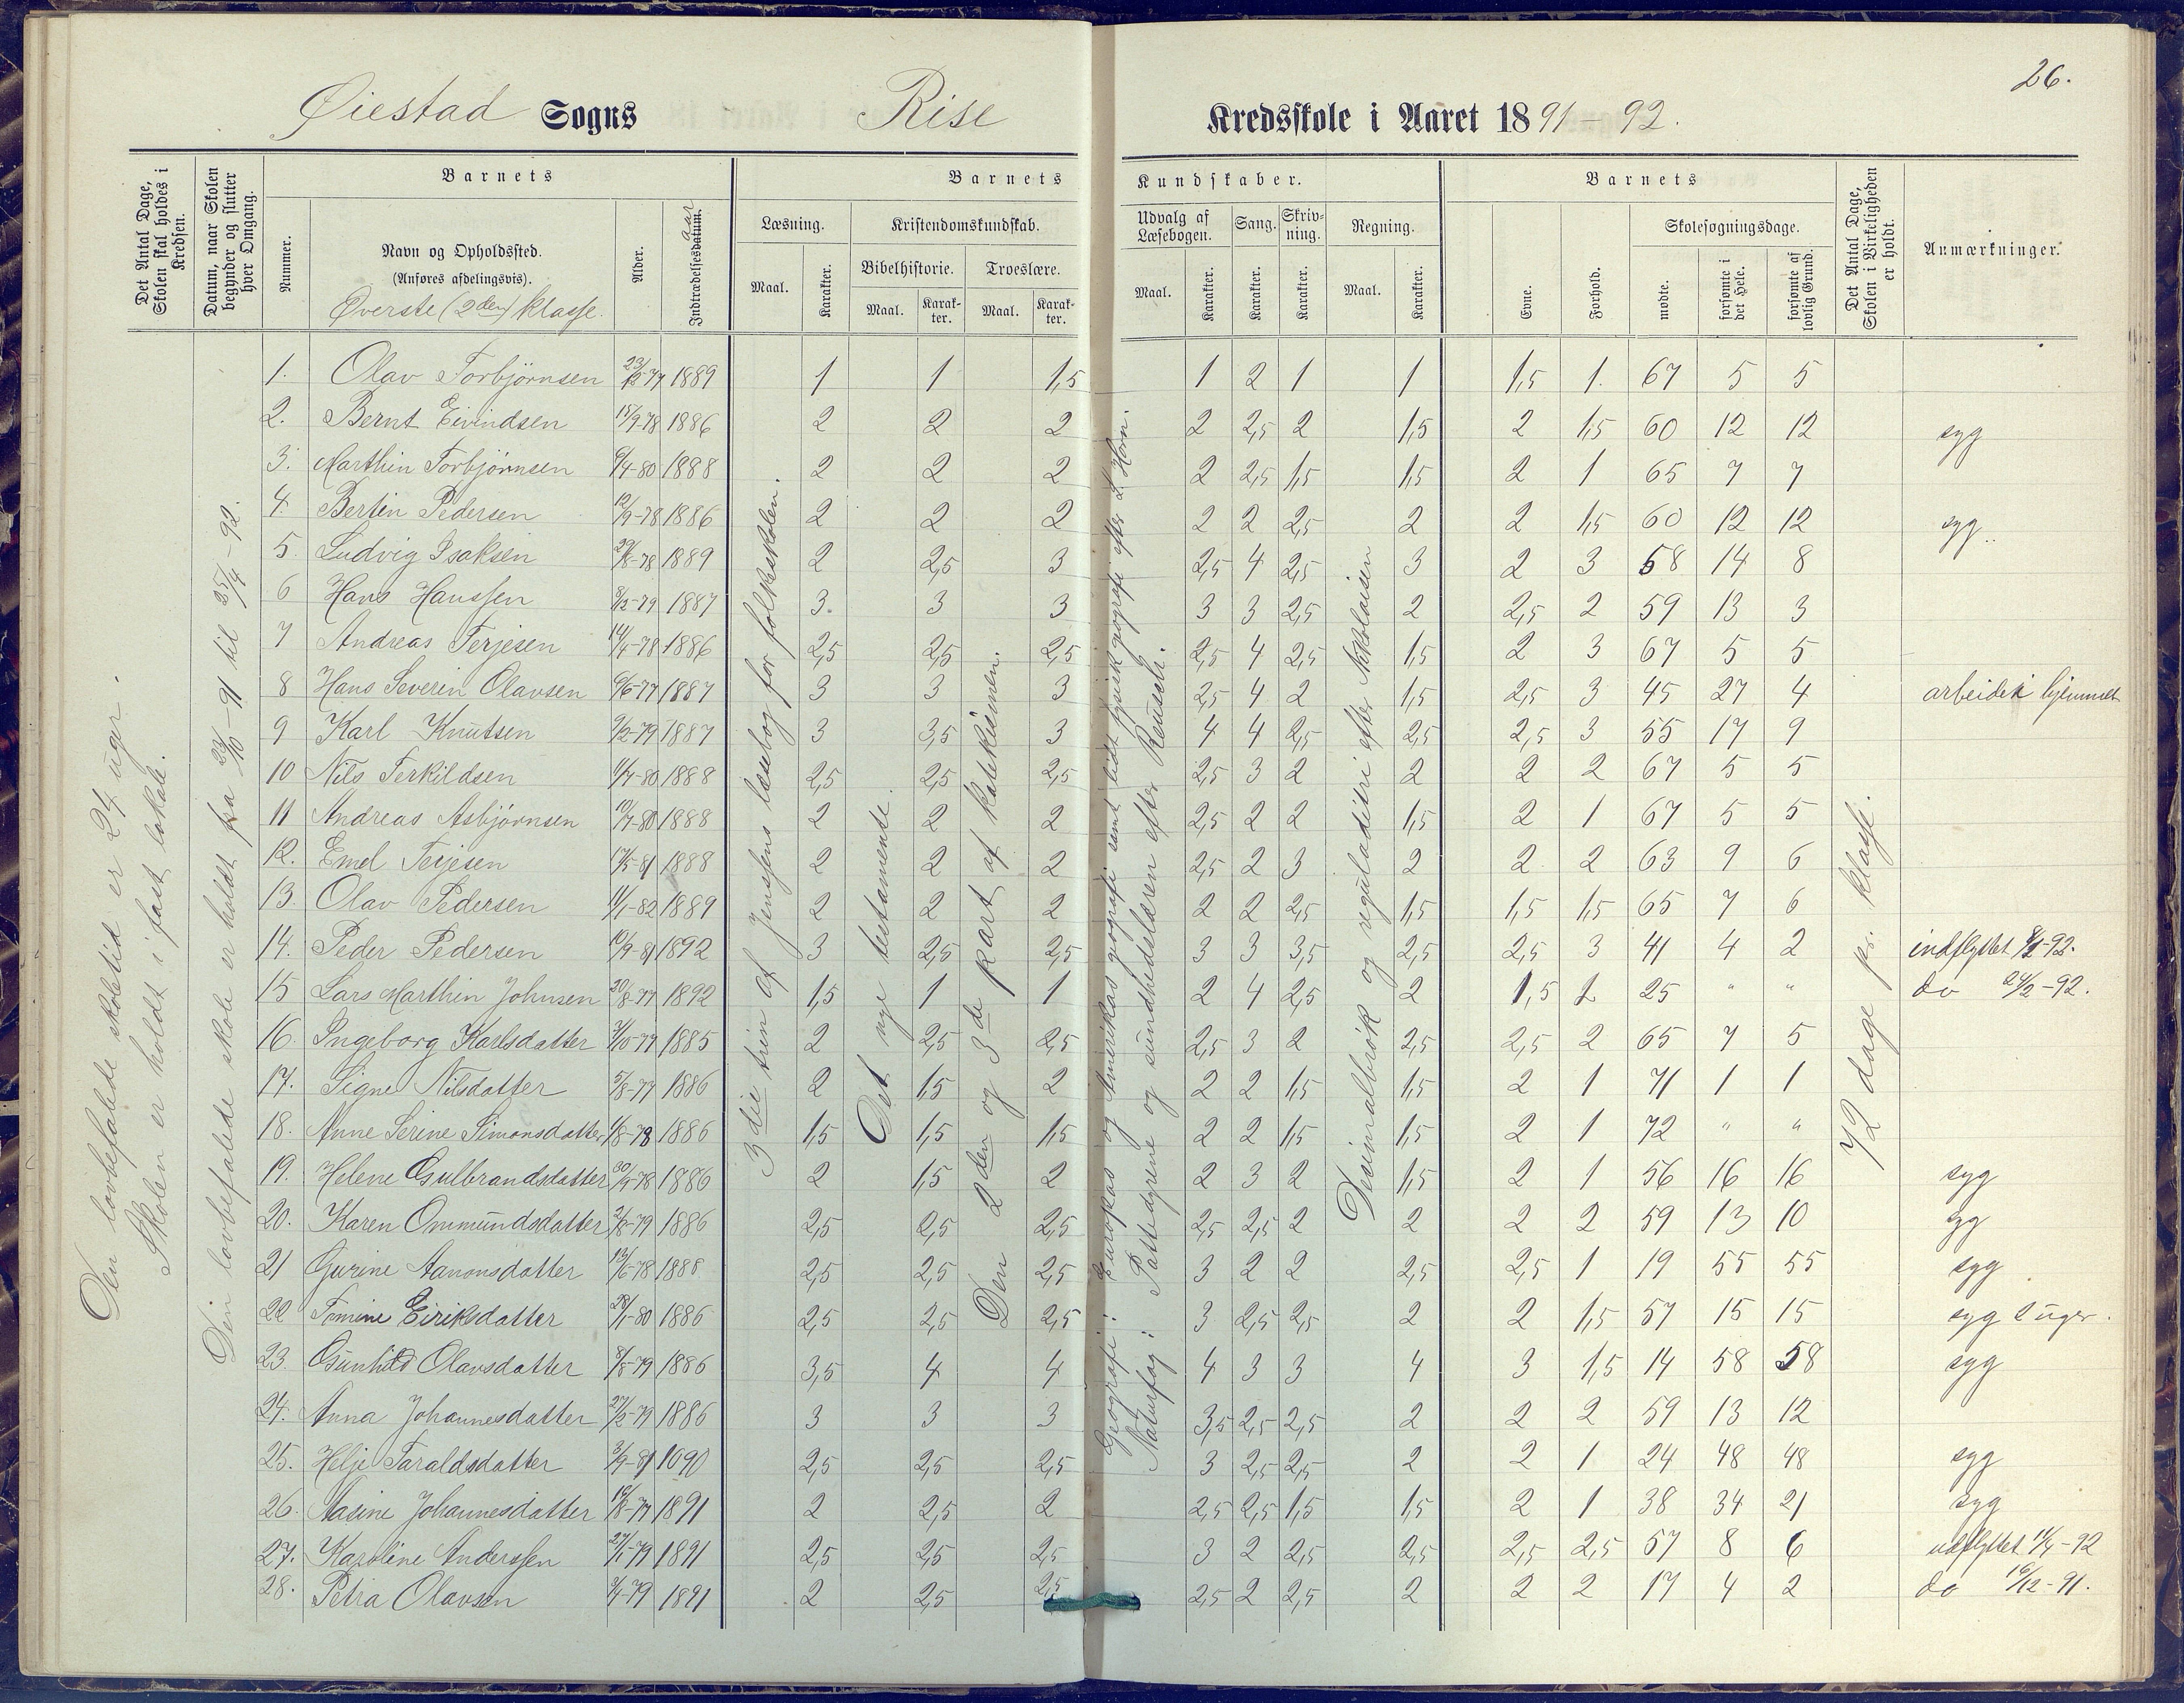 26.
Øiestad Sogns Rise Kredsskole i Aaret 1891-92.
Det Antal Dage, Skolen skal holdes i Kredsen.
Datum, naar Skolen begynder og slutter hver Omgang.
Barnets
Nummer.
Navn og Opholdssted.
(Anføres afdelingsvis).
Øverste (2den) klasse.
Alder.
Indtrædelsesdatum. aar
Barnets Kundskaber.
Læsning.
Maal.
Karakter.
Kristendomskundskab.
Bibelhistorie.
Maal.
Karakter.
Troeslære.
Maal.
Karakter.
Udvalg af Læsebogen.
Maal.
Karakter.
Sang.
Karakter.
Skrivning.
Karakter.
Regning.
Maal.
Karakter.
Barnets
Evne.
Forhold.
Skolesøgningsdage.
mødte.
forsømte i det Hele.
forsømte af lovlig Grund.
Det Antal Dage, Skolen i Virkeligheden er holdt.
Anmærkninger.
Den lovbefalede skoletid er 24 uger.
Skolen er holdt i fast lokale.
Den lovbefalede skole er holdt fra 23/10-91 til 25/4-92.
3die trin af Jenssens læsebog for folkeskolen.
Det nye testamente.
Den 2den og 3de part af katekismen.
Geografi: Europas og Amerikas geografi samt lidt fysisk geografi efter L. Horn.
Naturfag: Pattedyrene og sundhedslæren efter Reusch.
Decimalbrøk og reguladetri efter Nicolaisen
72 dage pr. klasse.
1. Olav Torbjørnsen 23/12-77 1889 1 1 1,5 1 2 1 1 1,5 1. 67 5 5
2. Bernt Eivindsen 15/9-78 1886 2 2 2 2 2,5 2 1,5 2 1,5 60 12 12 syg
3. Marthin Torbjørnsen 6/4-80 1888 2 2 2 2 2,5 1,5 1,5 2 1 65 7 7
4. Bertin Pedersen 12/9-78 1886 2 2 2 2 2 2,5 2 2 1,5 60 12 12 syg..
5. Ludvig Isaksen 29/8-78 1889 2 2,5 3 2,5 4 2,5 3 2 3 58 14 8
6 Hans Hanssen 8/12-79 1887 3. 3 3 3 3 2,5 2 2,5 2 59 13 3
7 Andreas Terjesen 14/4-78 1886 2,5 2,5 2,5 2,5 4 2,5 1,5 2 3 67 5 5
8 Hans Severin Olavsen 6/6-77 1887 3 3 3 2,5 4 2 1,5 2,5 3 45 27 4 arbeide i hjemmet
9 Karl Knutsen 9/2-79 1887 3 3,5 3 4 4 2,5 2,5 2,5 3 55 17 9
10 Nils Terkildsen 11/7-80 1888 2,5 2,5 2,5 2,5 3 2 2 2 2 67 5 5
11 Andreas Asbjørnsen 10/7-80 1888 2 2 2 2,5 2 2 1,5 2 1 67 5 5
12. Emel Terjesen 17/5-81 1888 2 2 2 2,5 2 3 2 2 2 63 9 6
13. Olav Pedersen 11/1-82 1889 2 2 2 2 2 2,5 1,5 1,5 1,5 65 7 6
14. Peder Pedersen 10/9-81 1892 3 2,5 2,5 3 3 3,5 2,5 2,5 3 41 4 2 indflyttet 8/1-92.
15 Lars Marthin Johnsen 30/8-77 1892 1,5 1 1 2 4 2,5 2 1,5 1 25 " " do 24/2-92.
16. Ingeborg Karlsdatter 7/10-77 1885 2 2,5 2,5 2,5 3 2 2,5 2,5 2 65 7 5
17. Signe Nilsdatter 5/8-77 1886 2 1,5 2 2 2 1,5 1,5 2 1 71 1 1
18. Anne Serine Simonsdatter 1/8-78 1886 1,5 1,5 1,5 2 2 1,5 1,5 2 1 72 " "
19. Helene Gulbrandsdatter 30/9-78 1886 2 1,5 2 2 3 2 1,5 2 1 56 16 16 syg
20. Karen Ommundsdatter 2/8-79 1886 2,5 2,5 2,5 2,5 2,5 2 2 2 2 59 13 10 syg
21 Gurine Aanonsdatter 13/6-78 1888 2,5 2,5 2,5 3 2 2 2,5 2,5 1 19 55 55 syg
22 Tomine Eiriksdatter 28/1-80 1886 2,5 2,5 2,5 3 2,5 2,5 2 2 1,5 57 15 15 syg 2 uger.
23. Gunhild Olavsdatter 8/8-79 1886 3,5 4 4 4 3 3 4 3 1,5 14 58 58 syg
24. Anna Johannesdatter 27/2-79 1886 3 3 3 3,5 2,5 2,5 2 2 2 59 13 12
25. Helje Taraldsdatter 3/9-81 1890 2,5 2,5 2,5 3 2,5 2,5 2 2 1 24 48 48 syg
26. Aasine Johannesdatter 16/8-77 1891 2 2,5 2 2,5 2,5 1,5 1,5 2 1 38 34 21 syg
27. Karoline Anderssen 27/1-79 1891 2,5 2,5 2,5 3 2 2,5 2,5 2,5 2,5 57 8 6 udflyttet 11/4-92
28. Petra Olavsen 9/1-79 1891 2 2,5 2,5 2,5 2 2,5 2 2 2 17 4 2 do 16/12-91.